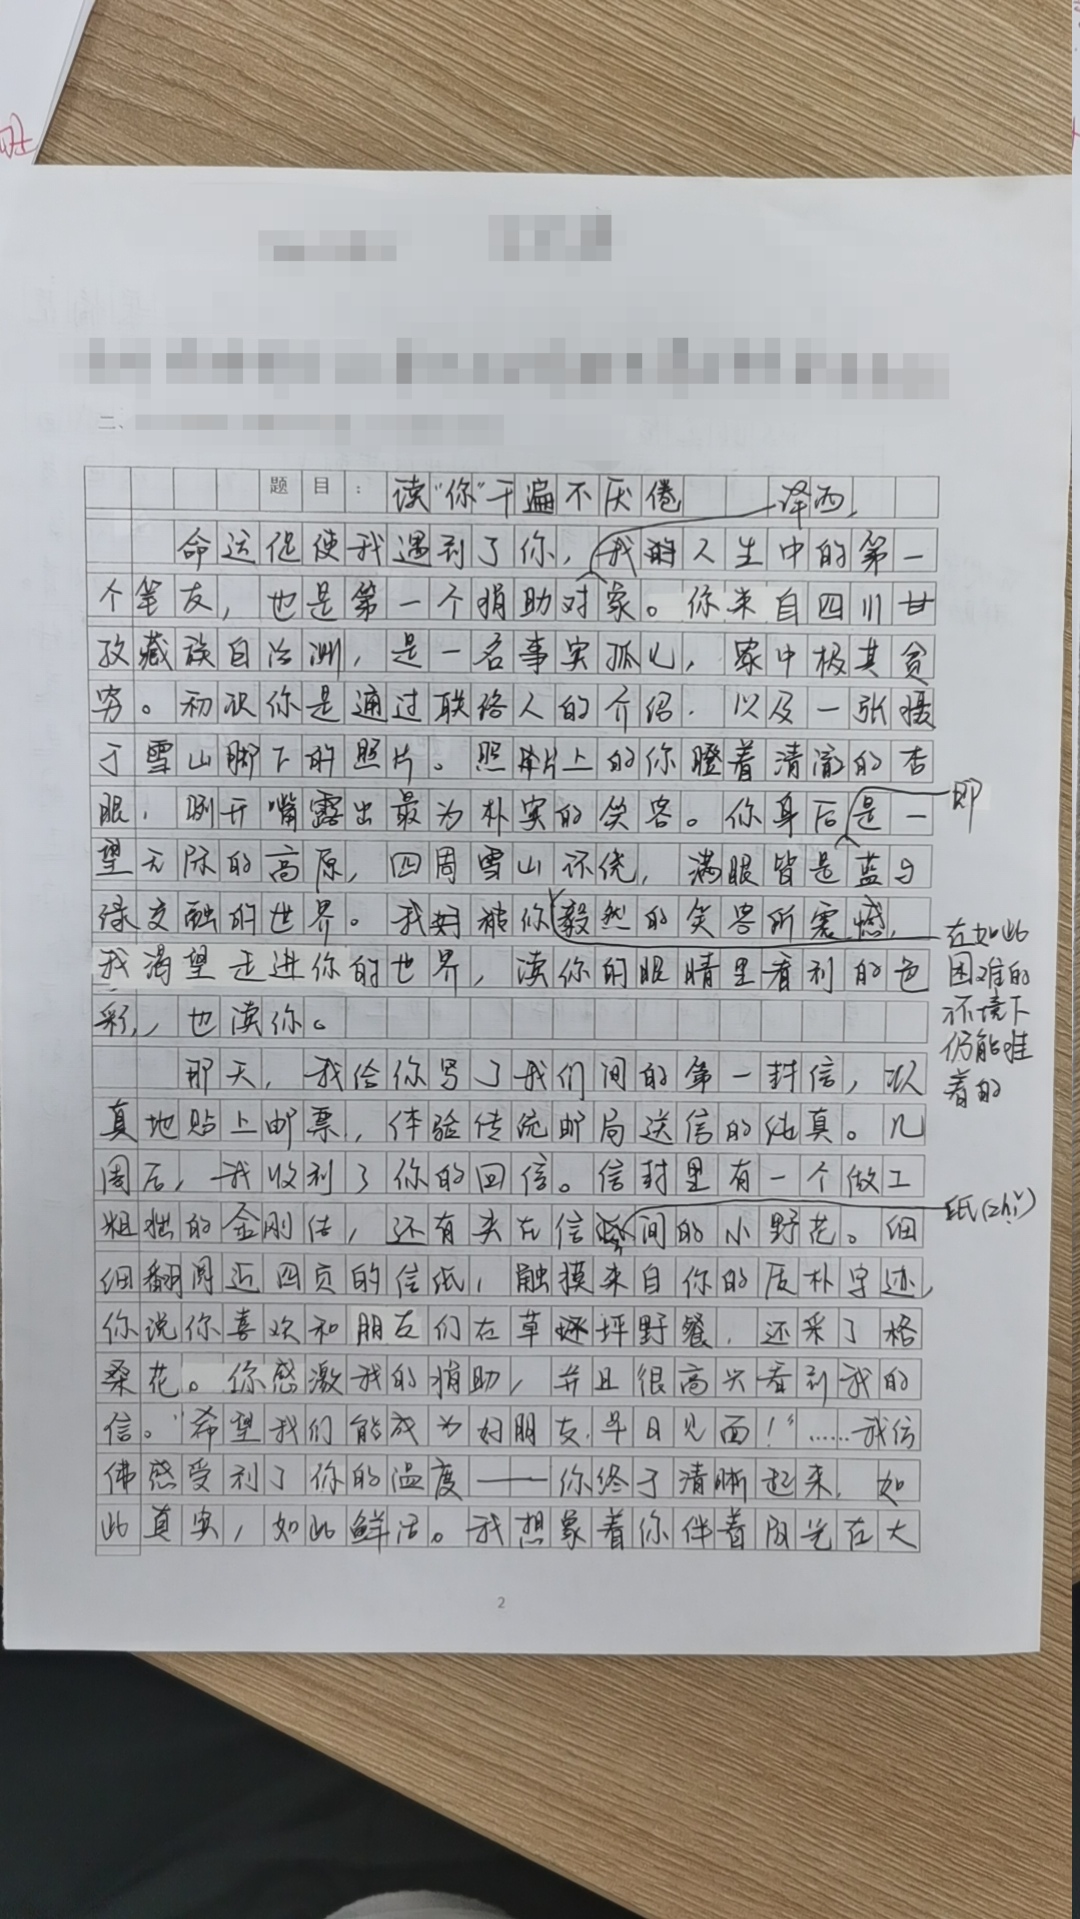 二、
题目：读“你”千遍不厌倦
命运促使我遇到了你，泽西，我人生中的第一
个笔友，也是第一个捐助对象。你来自四川甘
孜藏族自治洲，是一名事实孤儿，家中极其贫
穷。初识你是通过联络人的介绍，以及一张摄
于雪山脚下的照片。照片上的你瞪着清澈的杏
眼，咧开嘴露出最为朴实的笑容。你身后即是一
望无际的高原，四周雪山环绕，满眼皆是蓝与
绿交融的世界。我被你在如此困难的环境下仍能堆着的毅然的笑容所震憾，
我渴望走进你的世界，读你的眼睛里看到的色
彩，也读你。
那天，我给你写了我们间的第一封信，认
真地贴上邮票，体验传统邮局送信的纯真。几
周后，我收到了你的回信。信封里有一个做工
粗拙的金刚结，还有夹在信纸(zhǐ)间的小野花。细
细翻阅近四页的信纸，触摸来自你的质朴字迹，
你说你喜欢和朋友们在草坪野餐，还采了格
桑花。你感激我的捐助，并且很高兴看到我的
信。“希望我们能成为好朋友，早日见面！”……我仿
佛感受到了你的温度——你终于清晰起来，如
此真实，如此鲜活。我想象着你伴着阳光在大
2